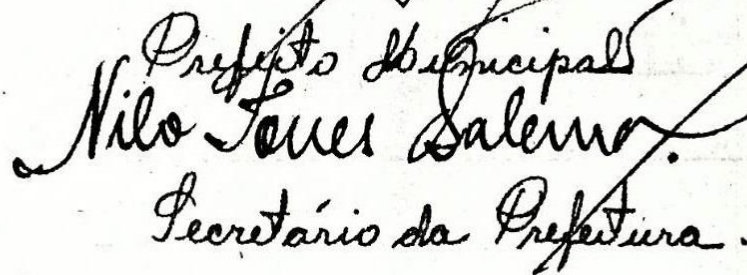 Prefeito Municipal
Nilo Torres Salerno.
Secretário da Prefeitura.